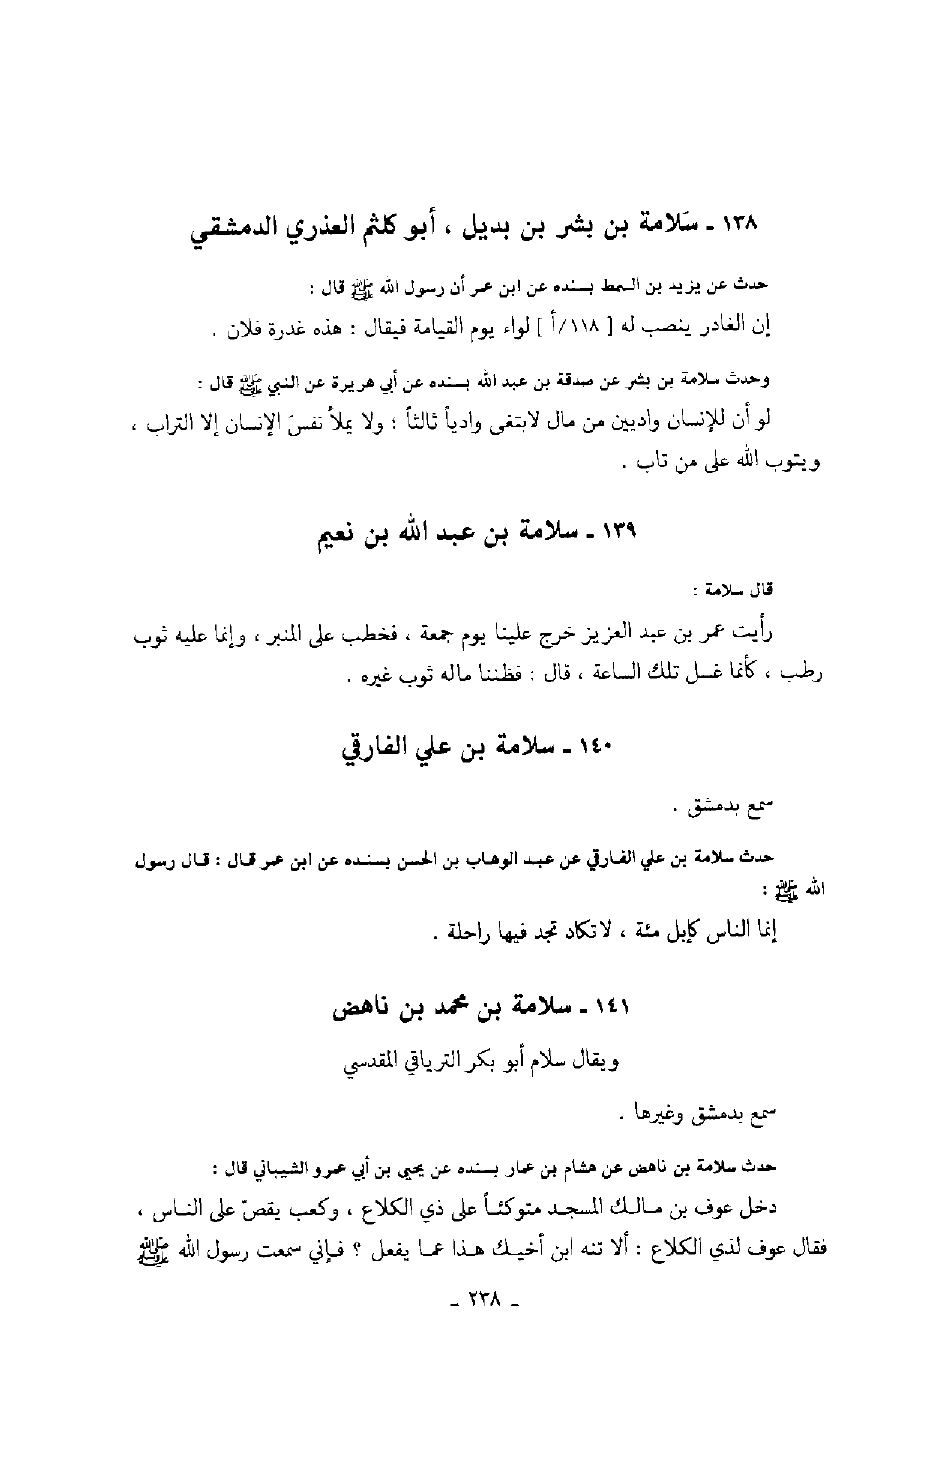 ١٣٨ ـ سَلامة بن بشر بن بديل ، أبو كلثم العذري الدمشقي
حدث عن يزيد بن السمط بسنده عن ابن عمر أن رسول الله ﷺ قال :
إن الغادر ينصب له [ ١١٨/أ ] لواء يوم القيامة فيقال : هذه غدرة فلان .
وحدث سلامة بن بشر عن صدقة بن عبد الله بسنده عن أبي هريرة عن النبي ﷺ قال :
لو أن للإنسان واديين من مال لابتغى وادياً ثالثاً ؛ ولا يملأ نفسَ الإنسان إلا التراب ،
ويتوب الله على من تاب .
١٣٩ ـ سلامة بن عبد الله بن نعيم
قال سلامة :
رأيت عمر بن عبد العزيز خرج علينا يوم جمعة ، فخطب على المنبر ، وإنما عليه ثوب
رطب ، كأنما غسل تلك الساعة ، قال : فظننا ماله ثوب غيره .
١٤٠ ـ سلامة بن علي الفارقي
سمع بدمشق .
حدث سلامة بن علي الفارقي عن عبد الوهاب بن الحسن بسنده عن ابن عمر قال : قال رسول
الله ﷺ :
إنما الناس كإبل مئة ، لاتكاد تجد فيها راحلة .
١٤١ ـ سلامة بن محمد بن ناهض
ويقال سلام أبو بكر الترياقي المقدسي
سمع بدمشق وغيرها .
حدث سلامة بن ناهض عن هشام بن عمار بسنده عن يحيى بن أبي عمرو الشيباني قال :
دخل عوف بن مالك المسجد متوكئاً على ذي الكلاع ، وكعب يقصّ على الناس ،
فقال عوف لذي الكلاع : ألا تنه ابن أخيك هذا عما يفعل ؟ فإني سمعت رسول الله ﷺ
ـ ٢٣٨ ـ